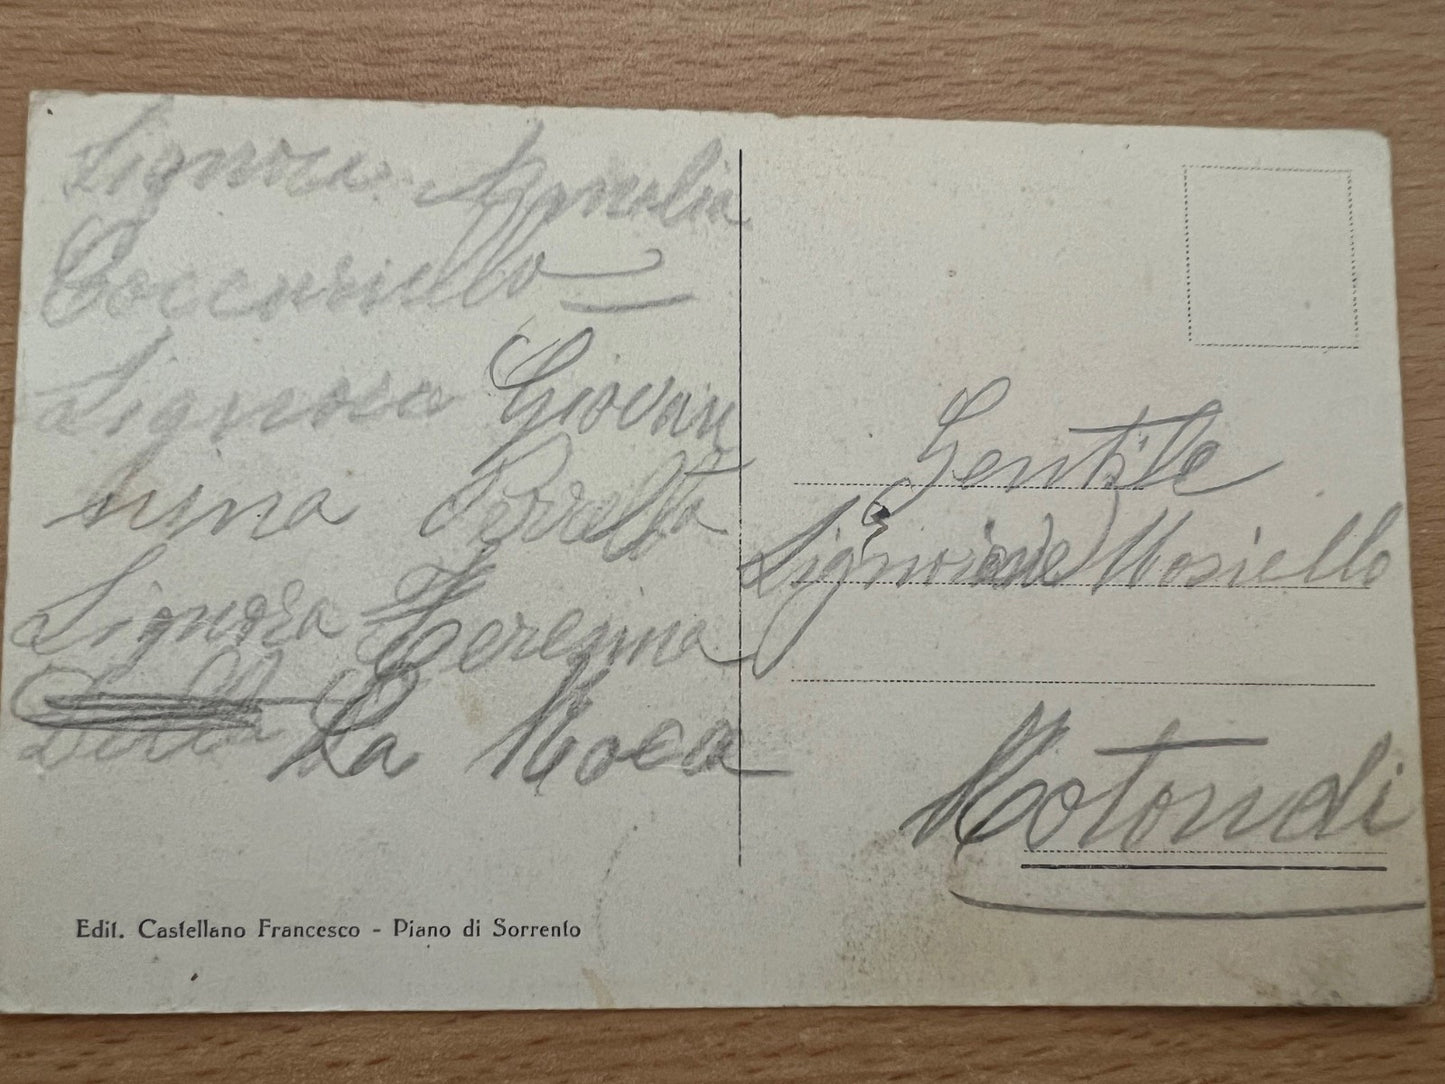 Signora Amalia
Coccuriello
Signora Giovan
nina Perrella
Signora Teresina
La Roca
Gentile
Signorine Mosiello
Rotondi
Edit. Castellano Francesco - Piano di Sorrento